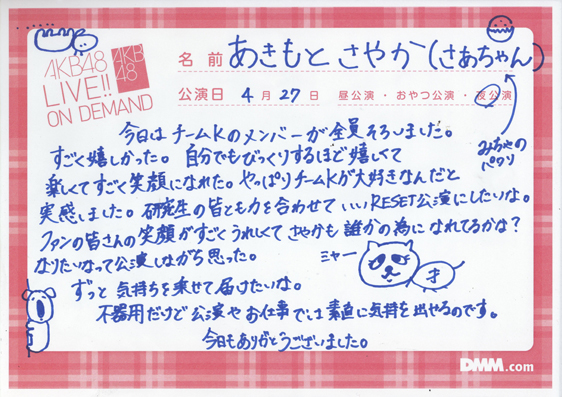 AKB48
LIVE!!
ON DEMAND
AKB
48
名前 あきもと さやか (さあちゃん)
公演日 4月27日 昼公演・おやつ公演・夜公演
みちゃの
パクリ
今日は チームKのメンバーが 全員そろいました。
すごく嬉しかった。自分でもびっくりするほど 嬉しくて
楽しくて すごく笑顔になれた。やっぱりチームKが大好きなんだと
実感しました。研究生の皆とも力を合わせて いいRESET公演にしたいな。
ファンの皆さんの笑顔がすごくうれしくて さやかも 誰かの為に なれてるかな?
なりたいなって公演しながら思った。
ミャー
才
ずっと 気持ちを乗せて届けたいな。
不器用だけど 公演や お仕事でいま 素直に気持を出せるのです。
今日もありがとうございました。
DMM.com